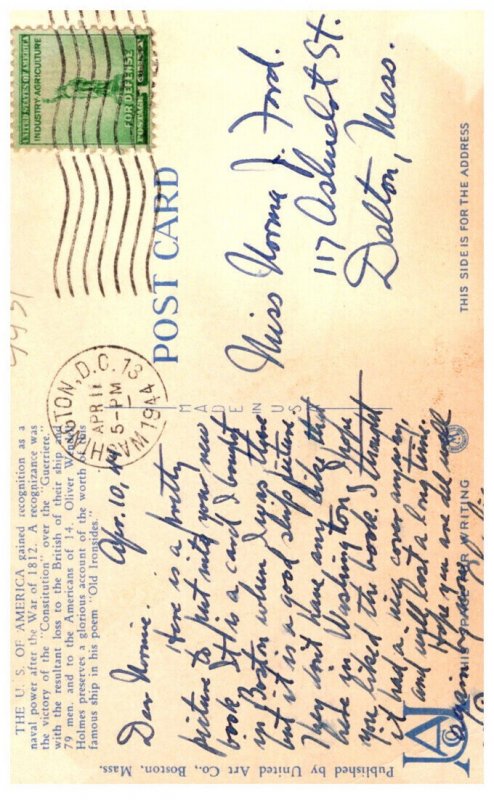 THE U. S. OF AMERICA gained recognition as a
naval power after the War of 1812. A recognizance was
the victory of the "Constitution" over the "Guerriere,"
with the resultant loss to the British of their ship and
79 men, and to the Americans of 14. Oliver Wendell
Holmes preserves a glorious account of the worth of this
famous ship in his poem "Old Ironsides."
Apr. 10, 44
Dear Normie.
Here is a pretty
picture to put into your new
book. It is a card I bought
in Boston when I was there
but it is a good ship picture
They don't have any like that
here in Washington. I hope
you liked the book. I thought
it had a nice cover anyway
and will last a long time.
Hope you are all well
Published by United Art Co., Boston, Mass.
UA
Co
THIS SPACE FOR WRITING
MADE IN U S
POST CARD
WASHINGTON, D.C. 13
APR 11
5-PM
1944
UNITED STATES OF AMERICA
INDUSTRY-AGRICULTURE
FOR DEFENSE
POSTAGE 1 CENT
Miss Norma J. Ford.
117 Ashuelot St.
Dalton, Mass.
THIS SIDE IS FOR THE ADDRESS